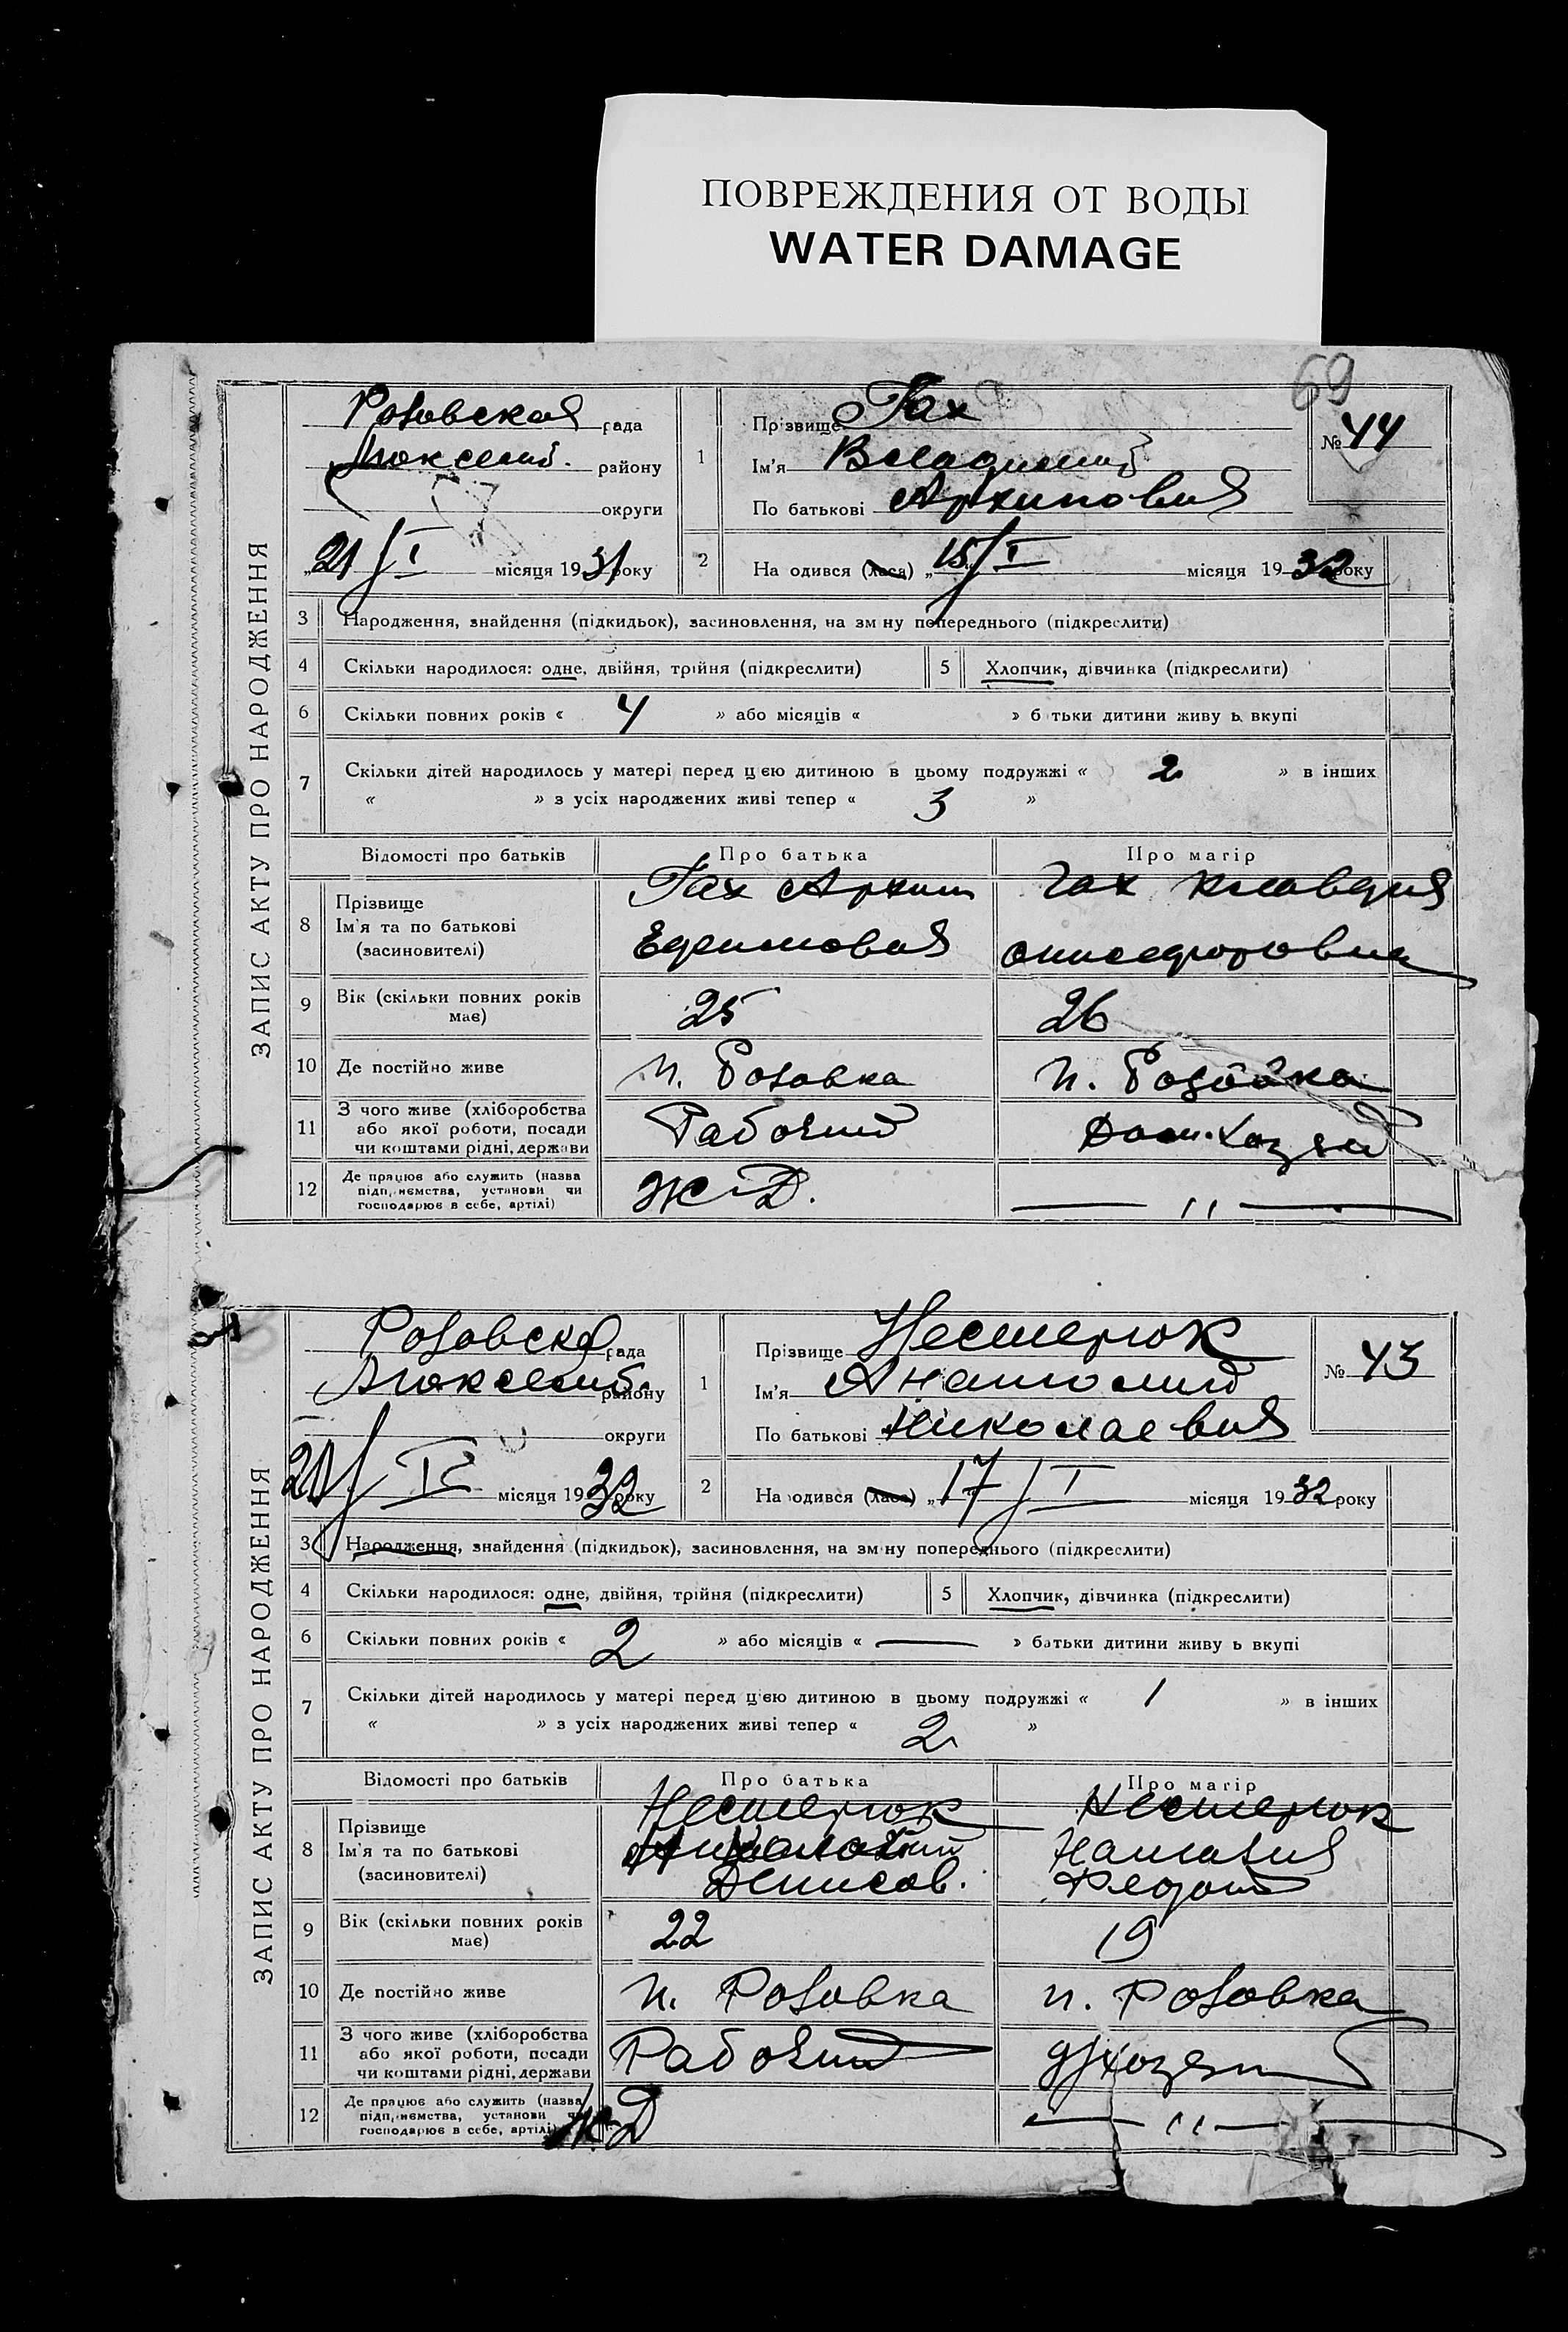 ПОВРЕЖДЕНИЯ ОТ ВОДЫ
WATER DAMAGE
69
ЗАПИС АКТУ ПРО НАРОДЖЕННЯ
Розовская рада
району
округи
21/I місяця 1931 року
1 Прізвище Гах
Ім'я Владимир
По батькові Архипович
№ 44
2 На одився (лася) „15/I місяця 1932 року
3 Народження, знайдення (підкидьок), засиновлення, на зм ну попереднього (підкреслити)
4 Скільки народилося: одне, двійня, трійня (підкреслити) 5 Хлопчик, дівчинка (підкреслити)
6 Скільки повних років « 4 » або місяців « » б тьки дитини живу ь вкупі
7 Скільки дітей народилось у матері перед цією дитиною в цьому подружжі « 2 » в інших
« » з усіх народжених живі тепер « 3 »
Відомості про батьків Про батька Про матір
8 Прізвище Ім'я та по батькові (засиновителі) Гах Архип Гах Клавдия
Ефимович
9 Вік (скільки повних років має) 25 26
10 Де постійно живе п. Розовка п. Розовка
11 З чого живе (хліборобства або якої роботи, посади чи коштами рідні, держави Рабочий Дом. хозяй
12 Де працює або служить (назва підп, иємства, установи чи господарює в себе, артілі) Ж-Д. — " —
ЗАПИС АКТУ ПРО НАРОДЖЕННЯ
Розовска рада
району
округи
21/I місяця 1932 року
1 Прізвище Нестерюк
Ім'я Анатолий
По батькові Николаевич
№ 43
2 На одився (лася) „17/I місяця 1932 року
3 Народження, знайдення (підкидьок), засиновлення, на зм ну попереднього (підкреслити)
4 Скільки народилося: одне, двійня, трійня (підкреслити) 5 Хлопчик, дівчинка (підкреслити)
6 Скільки повних років « 2 » або місяців « — » батьки дитини живу ь вкупі
7 Скільки дітей народилось у матері перед цією дитиною в цьому подружжі « 1 » в інших
« » з усіх народжених живі тепер « 2 »
Відомості про батьків Про батька Про матір
8 Прізвище Ім'я та по батькові (засиновителі) Нестерюк Нестерюк
Наталия
Денисов. Федот
9 Вік (скільки повних років має) 22 19
10 Де постійно живе п. Розовка п. Розовка
11 З чого живе (хліборобства або якої роботи, посади чи коштами рідні, держави Рабочий д/хозяй
12 Де працює або служить (назва підп, иємства, установи чи господарює в себе, артілі) Ж-Д — " —